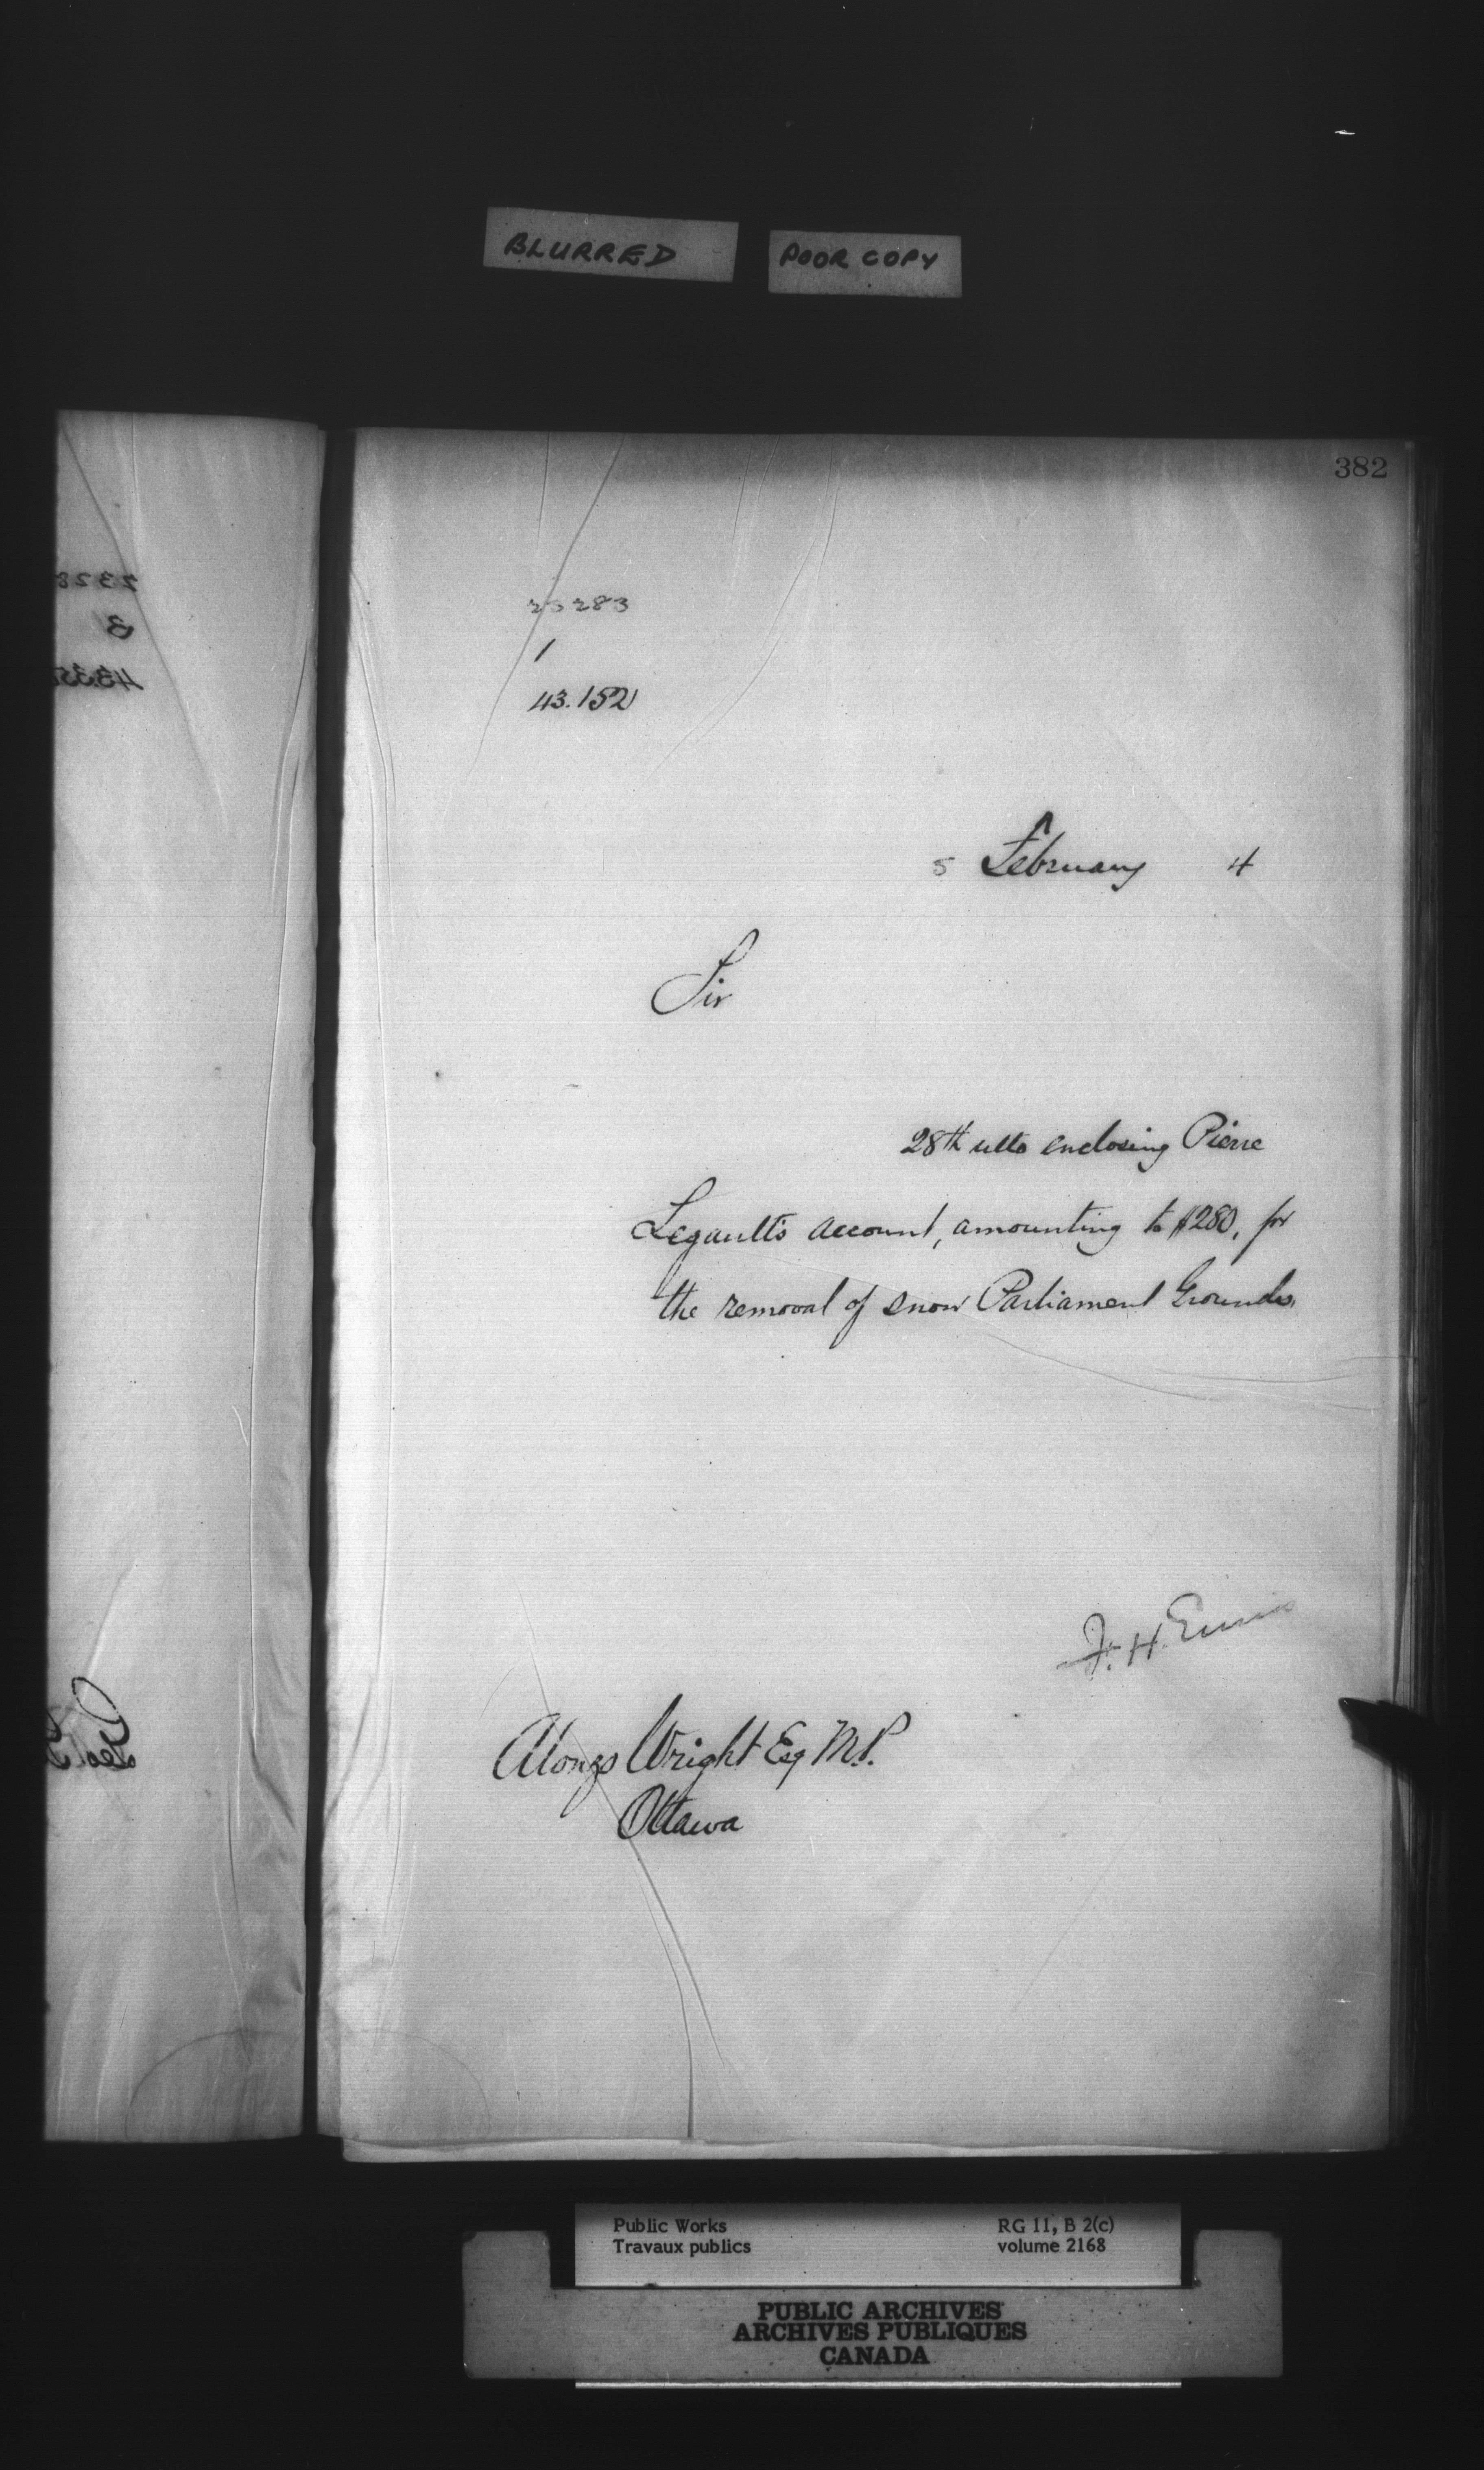 BLURRED
POOR COPY
382
23283
1
43.152
5 February 4
Sir
28th ulto enclosing Pierre
Legault's account, amounting to $280, for
the removal of snow Parliament Grounds.
F. H. Ennis
Alonzo Wright Esq M.P.
Ottawa
Public Works
Travaux publics
RG 11, B 2(c)
volume 2168
PUBLIC ARCHIVES
ARCHIVES PUBLIQUES
CANADA